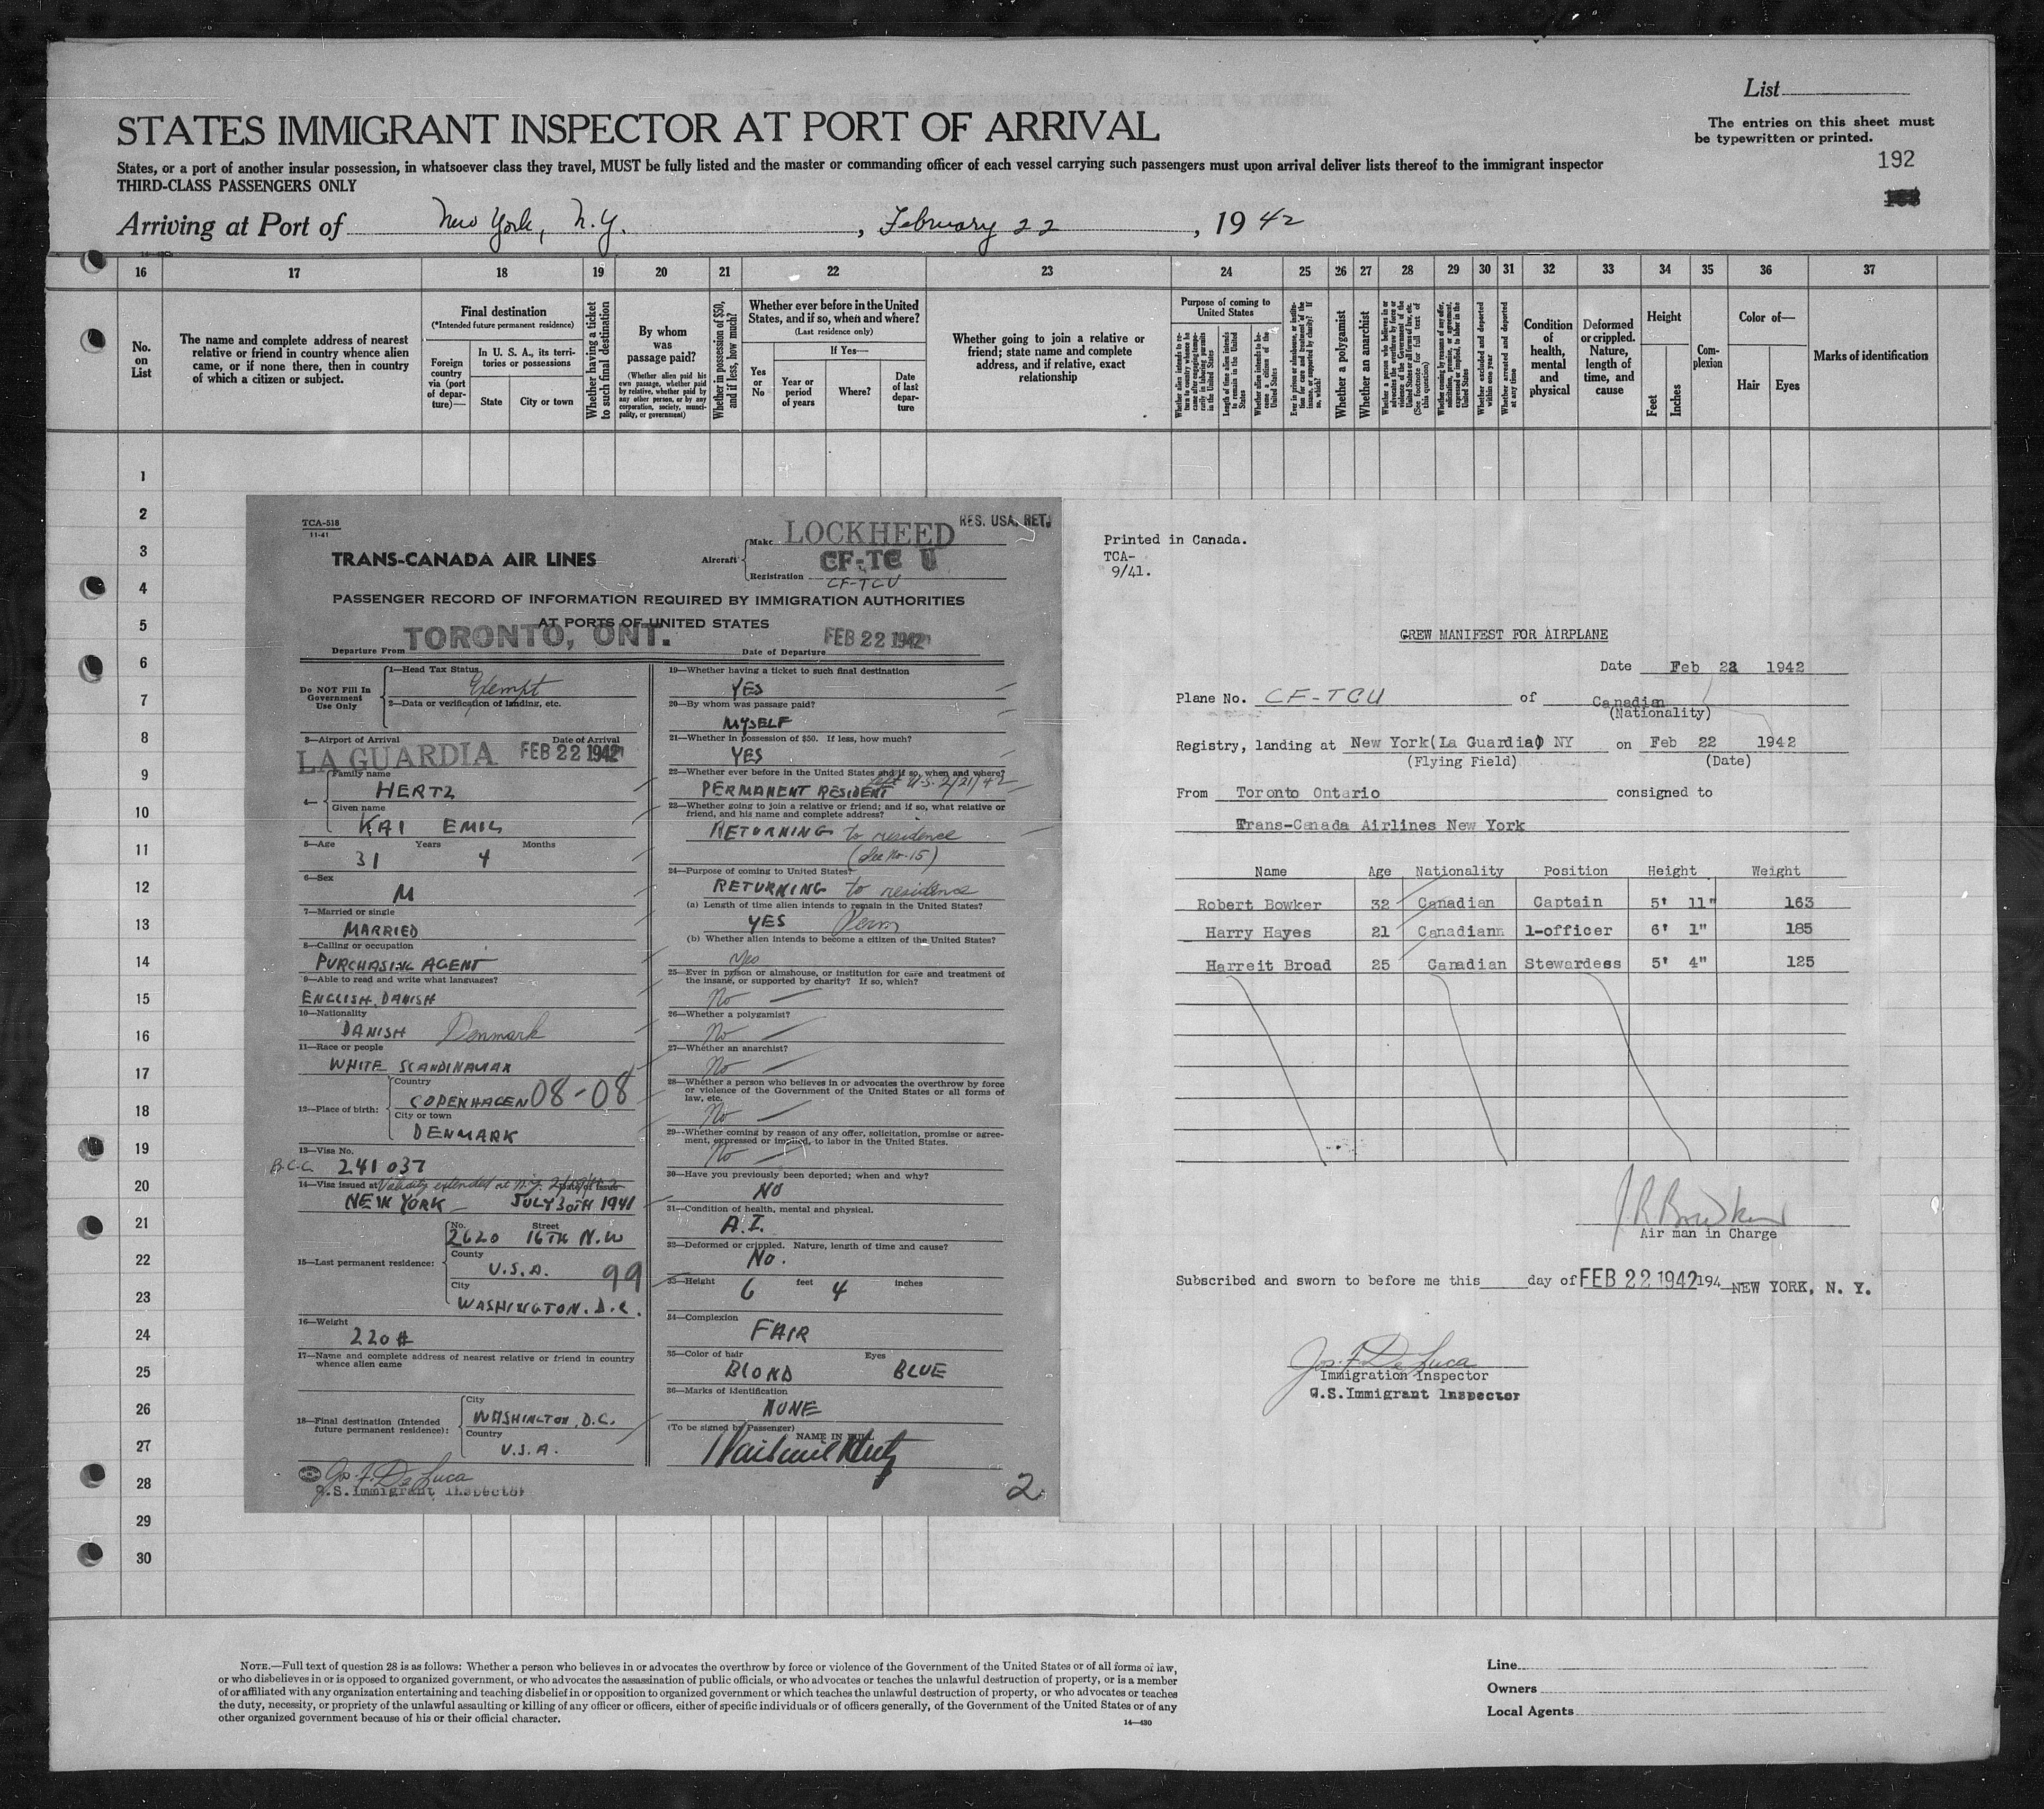 List
The entries on this sheet must
be typewritten or printed.
192
STATES IMMIGRANT INSPECTOR AT PORT OF ARRIVAL
States, or a port of another insular possession, in whatsoever class they travel, MUST be fully listed and the master or commanding officer of each vessel carrying such passengers must upon arrival deliver lists thereof to the immigrant inspector
THIRD-CLASS PASSENGERS ONLY
Arriving at Port of New York, N.Y., February 22, 1942
16 17 18 19 20 21 22 23 24 25 26 27 28 29 30 31 32 33 34 35 36 37
No. on List
The name and complete address of nearest relative or friend in country whence alien came, or if none there, then in country of which a citizen or subject.
Final destination
(*Intended future permanent residence)
Foreign country via (port of departure)—
In U. S. A., its territories or possessions
State
City or town
Whether having a ticket to such final destination
By whom was passage paid?
(Whether alien paid his own passage, whether paid by relative, whether paid by any other person, or by any corporation, society, municipality, or government)
Whether in possession of $50, and if less, how much?
Whether ever before in the United States, and if so, when and where?
(Last residence only)
Yes or No
If Yes—
Year or period of years
Where?
Date of last departure
Whether going to join a relative or friend; state name and complete address, and if relative, exact relationship
Purpose of coming to United States
Length of time alien intends to remain in the United States
Whether alien intends to become a citizen of the United States
Whether a polygamist
Whether an anarchist
Whether excluded and deported within one year
Whether arrested and deported at any time
Condition of health, mental and physical
Deformed or crippled. Nature, length of time, and cause
Height
Feet
Inches
Complexion
Color of—
Hair
Eyes
Marks of identification
1
2
3
4
5
6
7
8
9
10
11
12
13
14
15
16
17
18
19
20
21
22
23
24
25
26
27
28
29
30
TCA-518
11-41
TRANS-CANADA AIR LINES
RES. USA. RET.
Aircraft
Make LOCKHEED
CF-TC U
Registration CF-TCU
PASSENGER RECORD OF INFORMATION REQUIRED BY IMMIGRATION AUTHORITIES
AT PORTS OF UNITED STATES
Departure From TORONTO, ONT. Date of Departure FEB 22 1942
Do NOT Fill In
Government
Use Only
1—Head Tax Status
Exempt
2—Data or verification of landing, etc.
3—Airport of Arrival Date of Arrival
LA GUARDIA FEB 22 1942
4—
Family name
HERTZ
Given name
KAI EMIL
5—Age Years Months
31 4
6—Sex
M
7—Married or single
MARRIED
8—Calling or occupation
PURCHASING AGENT
9—Able to read and write what languages?
ENGLISH, DANISH
10—Nationality
DANISH Denmark
11—Race or people
WHITE SCANDINAVIAN
12—Place of birth:
Country
COPENHAGEN 08-08
City or town
DENMARK
13—Visa No.
B.C.C. 241037
14—Visa issued at Date of Issue
Validity extended at N.Y.
NEW YORK — JULY 30TH 1941
15—Last permanent residence:
No. Street
2620 16TH N.W
County
U.S.A. 99
City
WASHINGTON. D.C.
16—Weight
220 #
17—Name and complete address of nearest relative or friend in country
whence alien came
18—Final destination (Intended
future permanent residence):
City
WASHINGTON, D.C.
Country
U.S.A.
Jos. F. De Luca
U.S. Immigrant Inspector
19—Whether having a ticket to such final destination
YES
20—By whom was passage paid?
MYSELF
21—Whether in possession of $50. If less, how much?
YES
22—Whether ever before in the United States and if so, when and where?
Left U.S. 2/21/42
PERMANENT RESIDENT
23—Whether going to join a relative or friend; and if so, what relative or
friend, and his name and complete address?
RETURNING to residence
(See No. 15)
24—Purpose of coming to United States?
RETURNING to residence
(a) Length of time alien intends to remain in the United States?
YES Perm
(b) Whether alien intends to become a citizen of the United States?
Yes
25—Ever in prison or almshouse, or institution for care and treatment of
the insane, or supported by charity? If so, which?
No —
26—Whether a polygamist?
No —
27—Whether an anarchist?
No —
28—Whether a person who believes in or advocates the overthrow by force
or violence of the Government of the United States or all forms of
law, etc.
No —
29—Whether coming by reason of any offer, solicitation, promise or agree-
ment, expressed or implied, to labor in the United States.
No —
30—Have you previously been deported; when and why?
NO
31—Condition of health, mental and physical.
A.I.
32—Deformed or crippled. Nature, length of time and cause?
No.
33—Height 6 feet 4 inches
34—Complexion
FAIR
35—Color of hair Eyes
BLOND BLUE
36—Marks of identification
NONE
(To be signed by Passenger)
NAME IN FULL
Kai Emil Hertz
2
Printed in Canada.
TCA-
9/41.
CREW MANIFEST FOR AIRPLANE
Date Feb 22 1942
Plane No. CF-TCU of Canadian
(Nationality)
Registry, landing at New York(La Guardia) NY on Feb 22 1942
(Flying Field) (Date)
From Toronto Ontario consigned to
Trans-Canada Airlines New York
Name Age Nationality Position Height Weight
Robert Bowker 32 Canadian Captain 5' 11" 163
Harry Hayes 21 Canadiann 1-officer 6' 1" 185
Harreit Broad 25 Canadian Stewardess 5' 4" 125
J R Bowker
Air man in Charge
Subscribed and sworn to before me this day of FEB 22 1942 194 NEW YORK, N. Y.
Jos. F. De Luca
Immigration Inspector
U.S.Immigrant Inspector
NOTE.—Full text of question 28 is as follows: Whether a person who believes in or advocates the overthrow by force or violence of the Government of the United States or of all forms of law,
or who disbelieves in or is opposed to organized government, or who advocates the assassination of public officials, or who advocates or teaches the unlawful destruction of property, or is a member
of or affiliated with any organization entertaining and teaching disbelief in or opposition to organized government or which teaches the unlawful destruction of property, or who advocates or teaches
the duty, necessity, or propriety of the unlawful assaulting or killing of any officer or officers, either of specific individuals or of officers generally, of the Government of the United States or of any
other organized government because of his or their official character.
14—430
Line
Owners
Local Agents